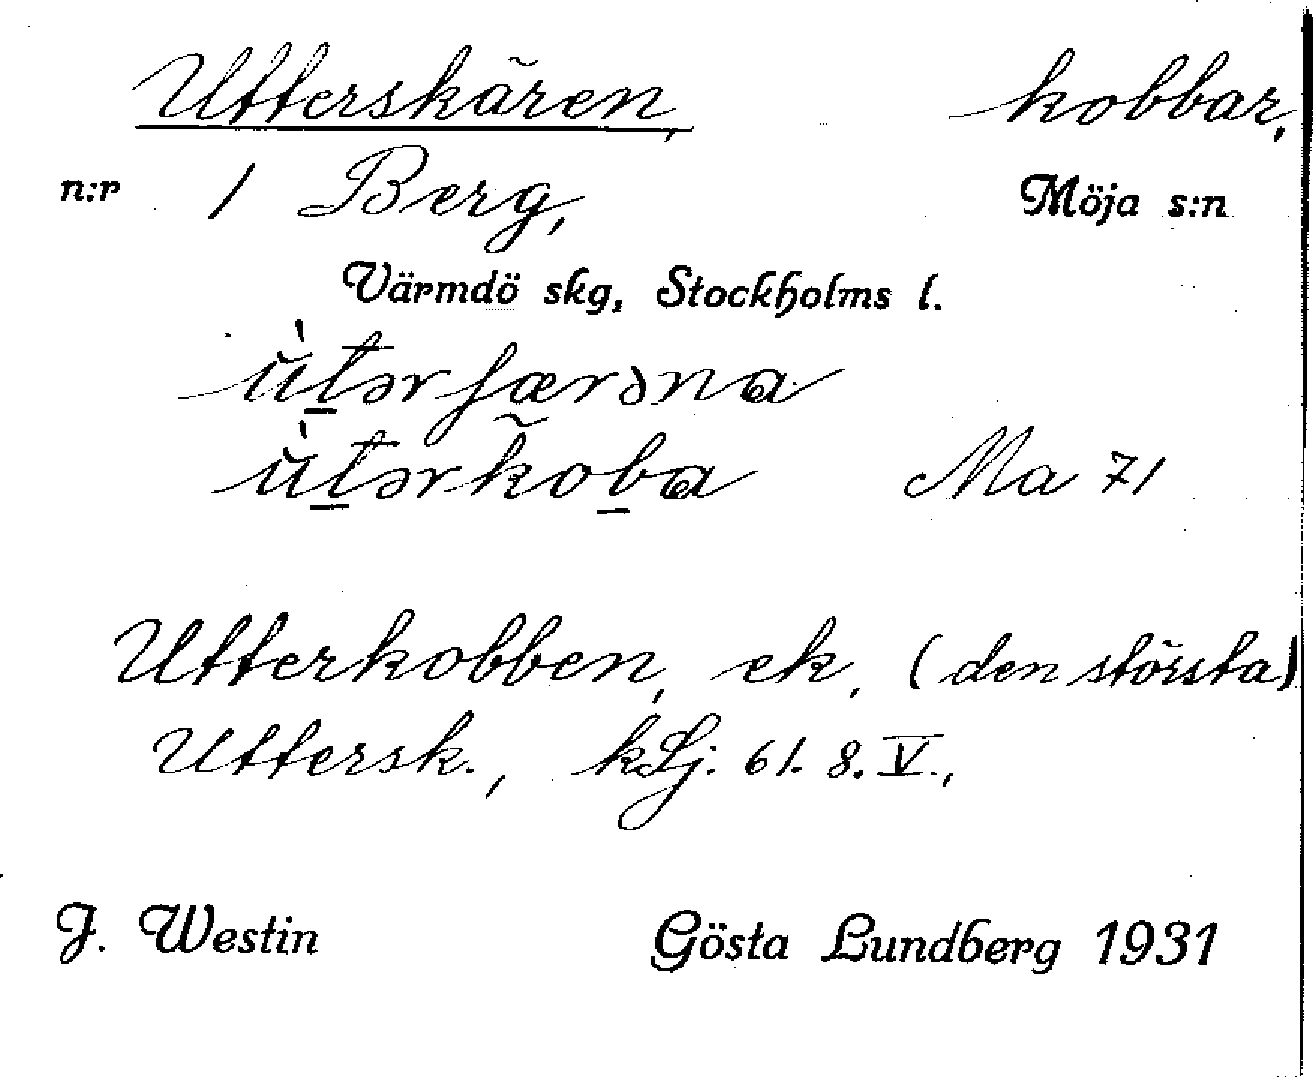 Utterskären, kobbar,
n:r 1 Berg, Möja s:n
Värmdö skg, Stockholms l.
ù̆t̠ərʃærəna
ù̆t̠ərk̃ob̠a Ma 71
Utterkobben, ek. (den största)
Uttersk., kLj. 61. 8. V.,
J. Westin Gösta Lundberg 1931